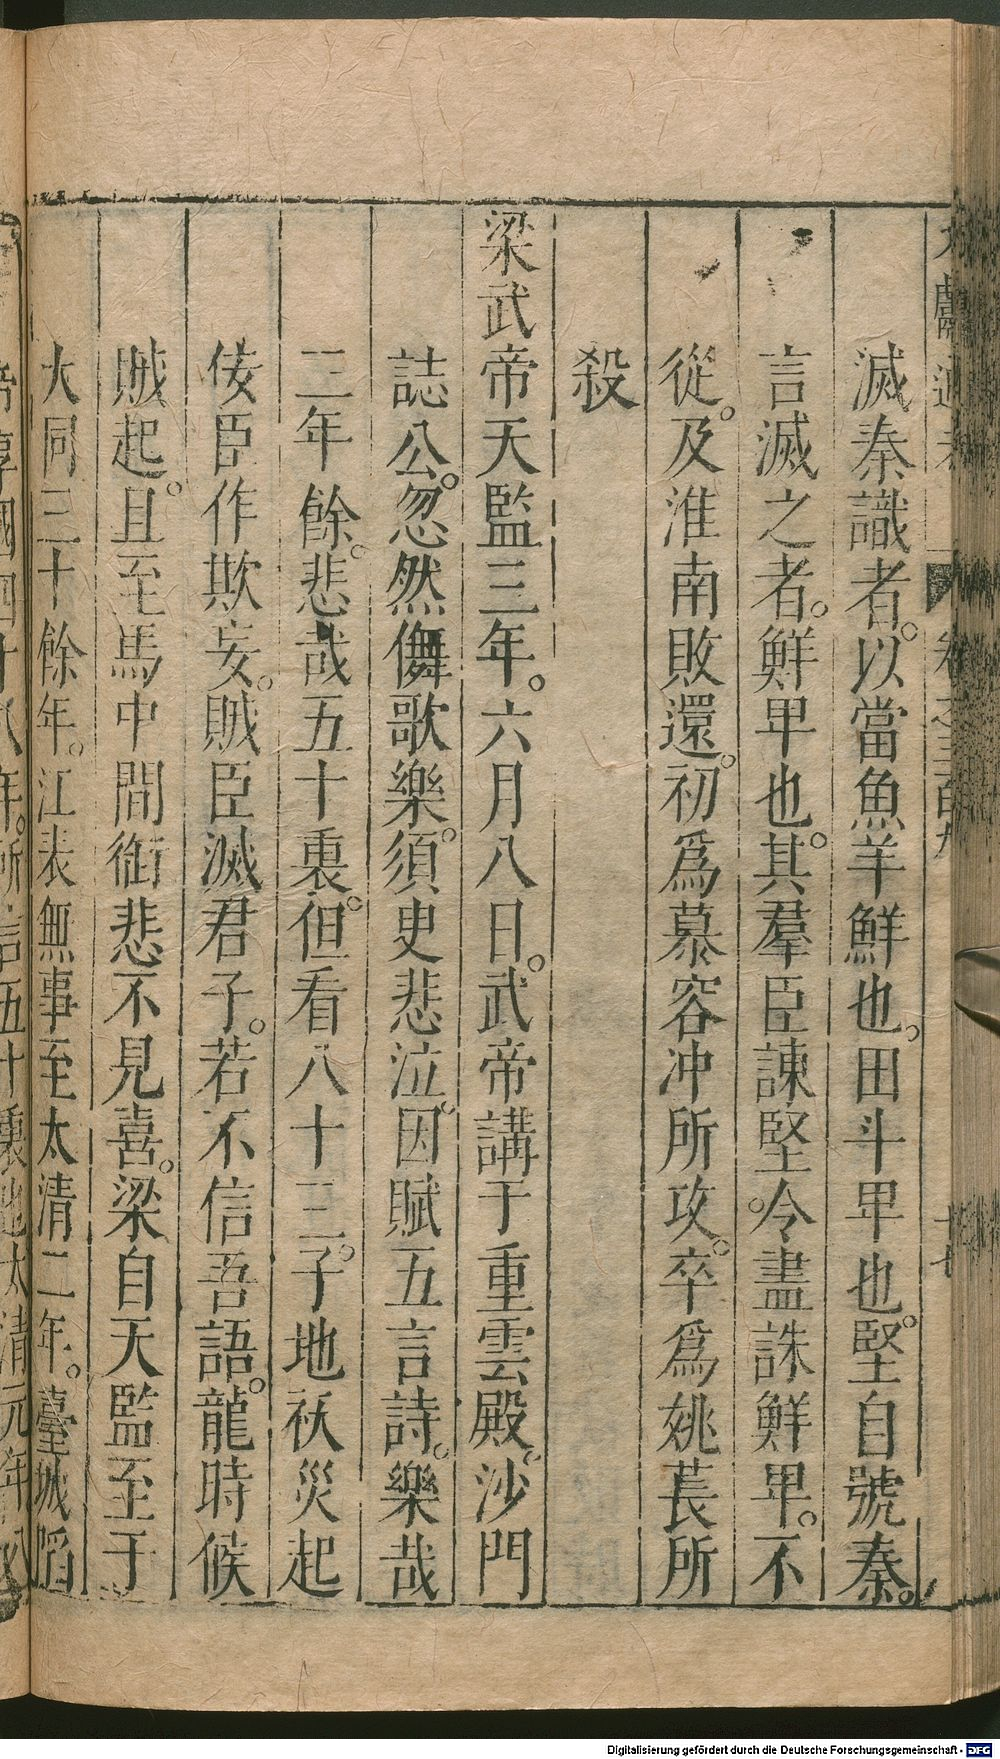 滅秦識者。以當魚羊鮮也。田斗卑也。堅自號秦。
言滅之者。鮮卑也。其羣臣諫堅。令盡誅鮮卑。不
從。及淮南敗還。初爲慕容冲所攻。卒爲姚萇所
殺
梁武帝天監三年。六月八日。武帝講于重雲殿。沙門
誌公。忽然儛歌樂。須史悲泣。因賦五言詩。樂哉
三十餘。悲哉五十裏。但看八十三。子地祅災起
佞臣作欺妄。賊臣滅君子。若不信吾語。龍時候
賊起。且至馬中間。銜悲不見喜。梁自天監至于
大同三十餘年。江表無事。至太清二年。臺城陷
帝享國四十八年。所言五十裏也。太清元年八
Digitalisierung gefördert durch die Deutsche Forschungsgemeinschaft - DFG